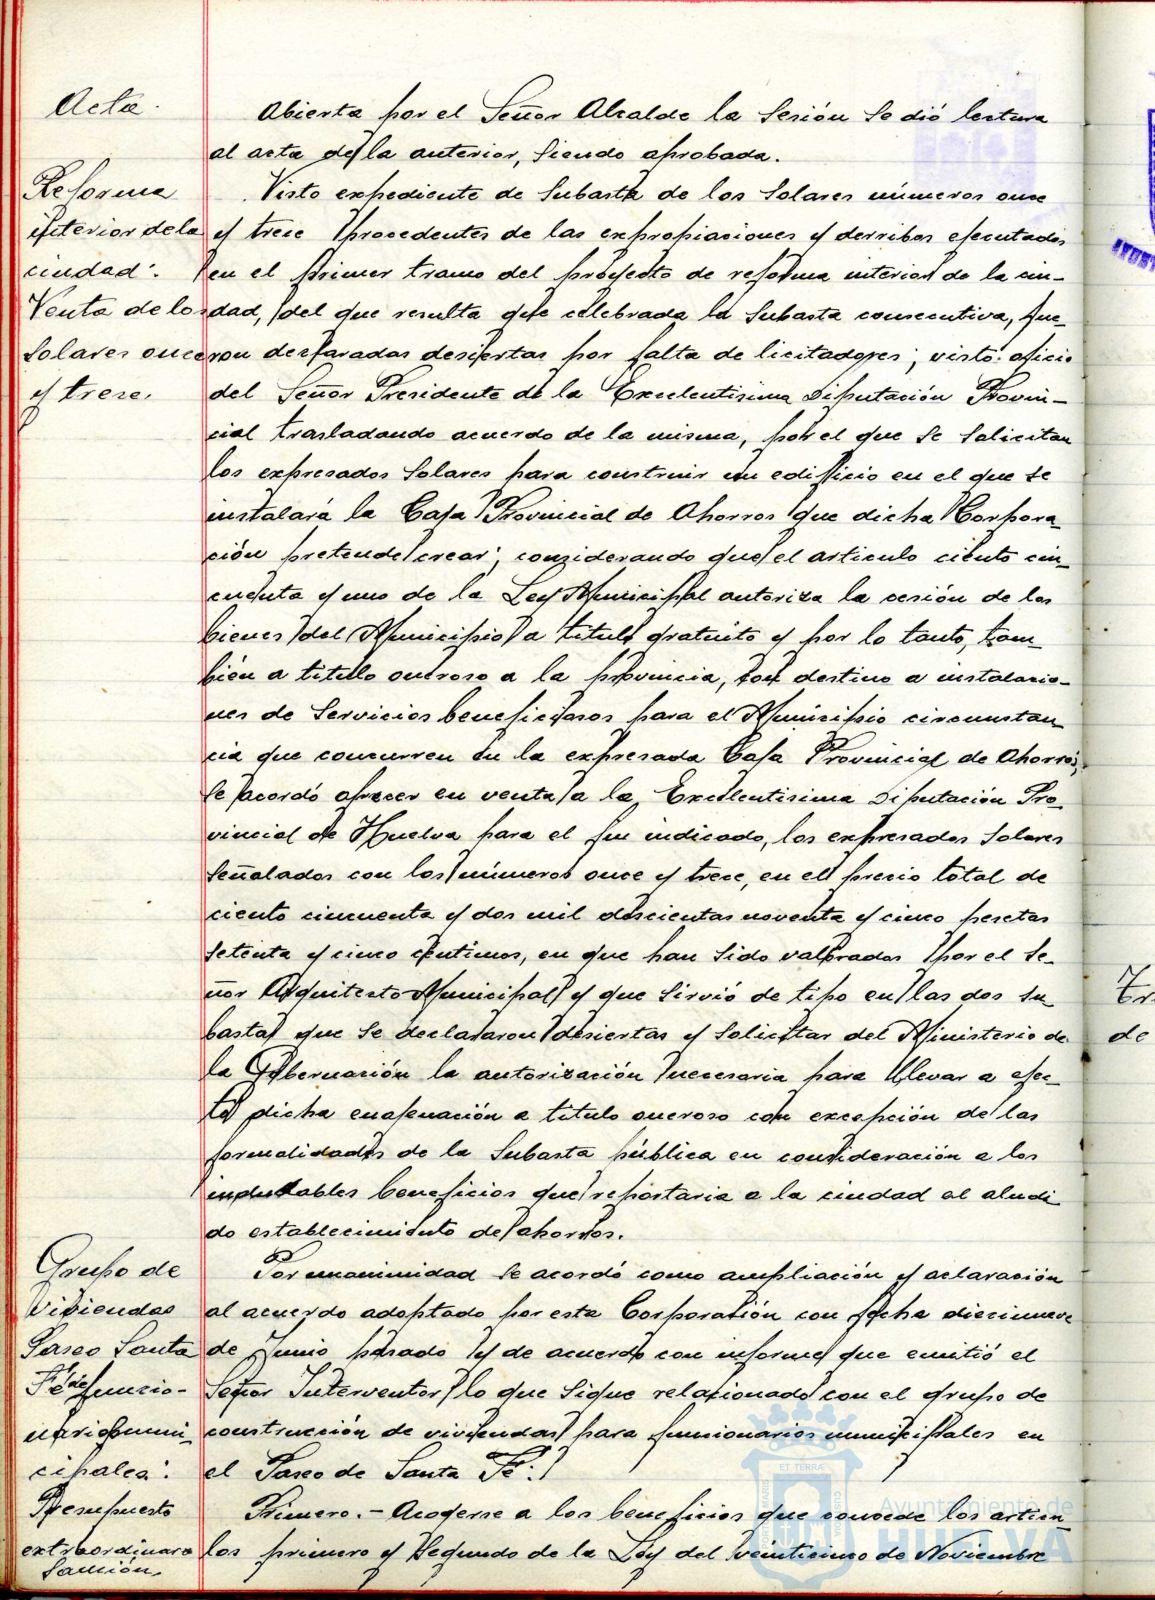 Acta.
Abierta por el Señor Alcalde la Sesión se dió lectura
al acta de la anterior, siendo aprobada.
Reforma
interior de la
ciudad.
Venta de los
solares once
y trece.
Visto expediente de subasta de los solares números once
y trece procedentes de las expropiaciones y derribos ejecutados
en el primer tramo del proyecto de reforma interior de la ciu-
dad, del que resulta que celebrada la subasta consecutiva, fue-
ron declaradas desiertas por falta de licitadores; visto oficio
del Señor Presidente de la Excelentísima Diputación Provin-
cial trasladando acuerdo de la misma, por el que se solicitan
los expresados solares para construir un edificio en el que se
instalará la Caja Provincial de Ahorros que dicha Corpora-
ción pretende crear; considerando que el artículo ciento cin-
cuenta y uno de la Ley Municipal autoriza la cesión de los
bienes del Municipio a título gratuito y por lo tanto, tam-
bién a título oneroso a la provincia, con destino a instalacio-
nes de servicios beneficiosos para el Municipio circunstan-
cia que concurren en la expresada Caja Provincial de Ahorros,
se acordó ofrecer en venta a la Excelentísima Diputación Pro-
vincial de Huelva para el fin indicado, los expresados solares
señalados con los números once y trece, en el precio total de
ciento cincuenta y dos mil doscientas noventa y cinco pesetas
setenta y cinco céntimos, en que han sido valorados por el Se-
ñor Arquitecto Municipal y que sirvió de tipo en las dos su-
bastas que se declararon desiertas y solicitar del Ministerio de
la Gobernación la autorización necesaria para llevar a efec-
to dicha enajenación a título oneroso con excepción de las
formalidades de la subasta pública en consideración a los
indudables beneficios que reportaria a la ciudad el aludi
do establecimiento de ahorros.
Grupo de
Viviendas
Paseo Santa
Fé de funcio-
narios muni-
cipales.
Presupuesto
extraordinario
Sanción.
Por unanimidad se acordó como ampliación y aclaración
al acuerdo adoptado por esta Corporación con fecha diecinueve
de Junio pasado y de acuerdo con informe que emitió el
Señor Interventor lo que sigue relacionado con el grupo de
construcción de viviendas para funcionarios municipales en
el Paseo de Santa Fé:
Primero.- Acogerse a los beneficios que concede los artícu-
los primero y segundo de la Ley del veinticinco de Noviembre
de
ET TERRA
Ayuntamiento de
HUELVA